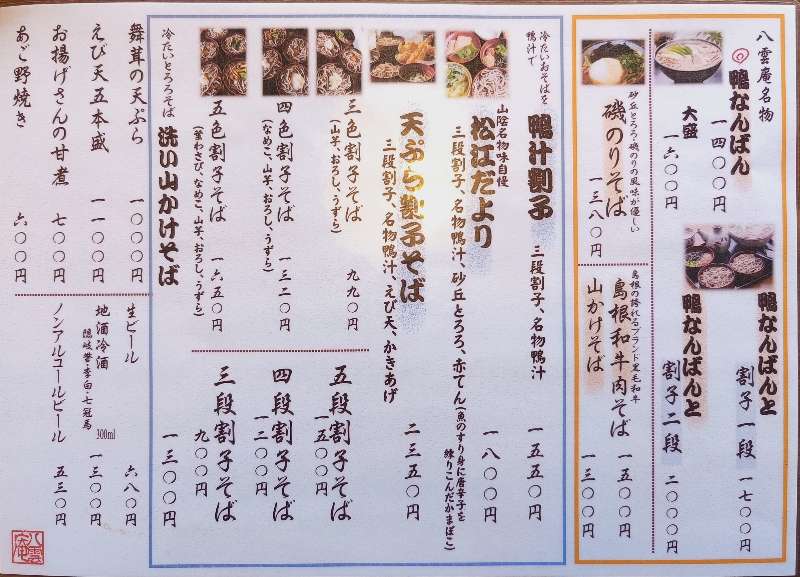 八雲庵名物
鴨なんばん
一四〇〇円
大盛
一六〇〇円
鴨なんばんと
割子一段
一七〇〇円
鴨なんばんと
割子二段
二〇〇〇円
砂丘とろろ・磯のりの風味が優しい
磯のりそば
一三八〇円
島根の誇れるブランド黒毛和牛
島根和牛肉そば
一五〇〇円
山かけそば
一三〇〇円
冷たいおそばを
鴨汁で
鴨汁割子
三段割子、名物鴨汁
一五五〇円
山陰名物味自慢
松江だより
三段割子、名物鴨汁、砂丘とろろ、赤てん(魚のすり身に唐辛子を
練りこんだかまぼこ)
一八〇〇円
天ぷら割子そば
三段割子、名物鴨汁、えび天、かきあげ
二三五〇円
三色割子そば
(山芋、おろし、うずら)
九九〇円
四色割子そば
(なめこ、山芋、おろし、うずら)
一三二〇円
五色割子そば
(茎わさび、なめこ、山芋、おろし、うずら)
一六五〇円
五段割子そば
一五〇〇円
四段割子そば
一二〇〇円
三段割子そば
九〇〇円
冷たいとろろそば
洗い山かけそば
一三〇〇円
舞茸の天ぷら
一〇〇〇円
えび天五本盛
一一〇〇円
お揚げさんの甘煮
七〇〇円
あご野焼き
六〇〇円
生ビール
六八〇円
地酒冷酒 300ml
隠岐誉・李白・七冠馬
一三〇〇円
ノンアルコールビール
五三〇円
八雲庵